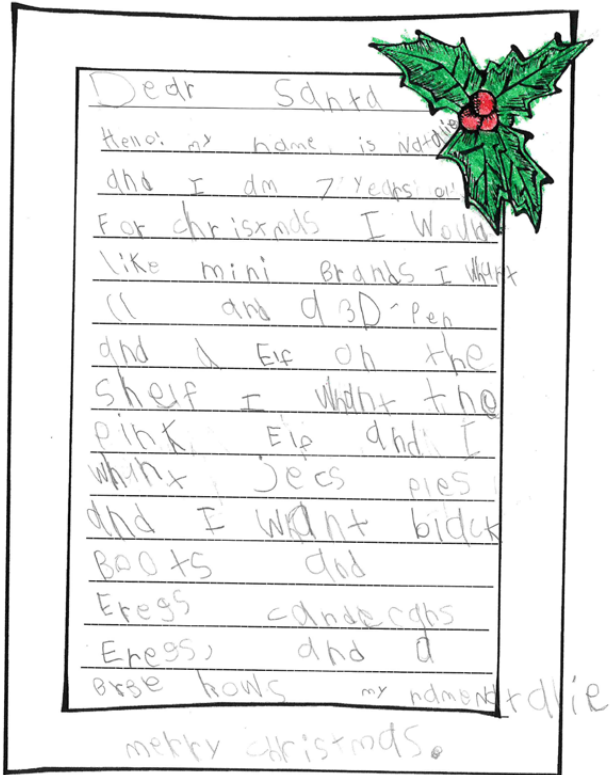 Dear Santa
Hello! my name is Natalie
and I am 7 years ol
For christmas I Would
like mini Brands I whant
11 and a 3D-Pen
and a Elf on the
shelf I whant the
pink Elf and I
whant jecs ples
and I want black
Boots and
Eregs candecans
Eregs, and a
Brbe hows my name Natalie
merry christmas.